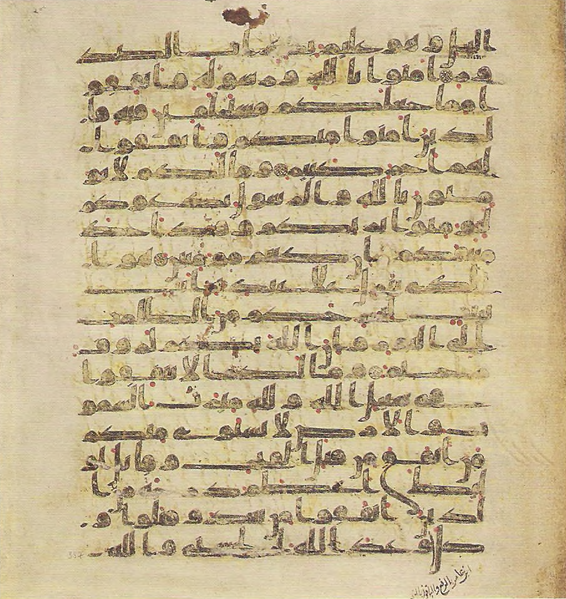 اليل وهو عليم بذات الصد
ور امنوا بالله ورسوله وانفقو
ا مما جعلكم مستخلفين فيه فا
لذين امنوا منكم وانفقوا
لهم اجر كبير وما لكم لا تو
منون بالله والرسول يدعوكم
لتومنوا بربكم وقد اخذ
ميثقكم ان كنتم مومنين هو ا
لذي ينزل على عبده ايت
بينت ليخرجكم من الظلمت
الى النور وان الله بكم لروف
رحيم وما لكم الا تنفقوا
في سبيل الله ولله ميرث السمو
ت والارض لا يستوي منكم
من انفق من قبل الفتح وقتل او
لئك اعظم درجة من ا
لذين انفقوا من بعد وقتلوا و
كلا وعد الله الحسنى والله